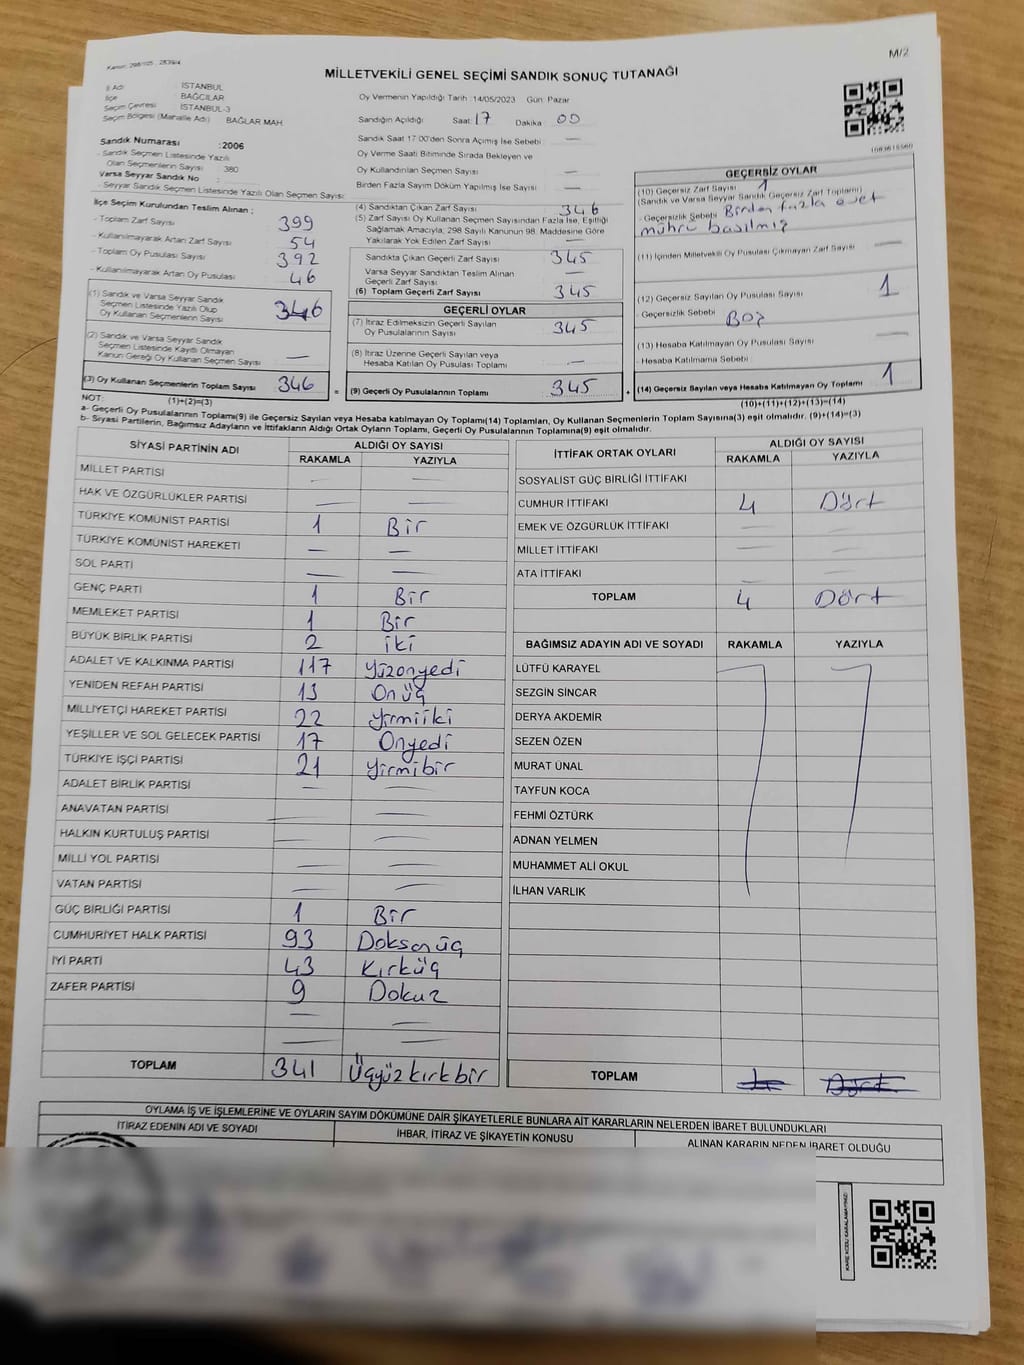 M/2
Kanun: 298/105 , 2839/4
MİLLETVEKİLİ GENEL SEÇİMİ SANDIK SONUÇ TUTANAĞI
İl Adı : İSTANBUL
İlçe : BAĞCILAR
Seçim Çevresi : İSTANBUL-3
Seçim Bölgesi (Mahalle Adı) : BAĞLAR MAH.
Sandık Numarası :2006
- Sandık Seçmen Listesinde Yazılı
Olan Seçmenlerin Sayısı : 380
Varsa Seyyar Sandık No :
- Seyyar Sandık Seçmen Listesinde Yazılı Olan Seçmen Sayısı:
İlçe Seçim Kurulundan Teslim Alınan ;
- Toplam Zarf Sayısı 399
- Kullanılmayarak Artan Zarf Sayısı 54
- Toplam Oy Pusulası Sayısı 392
- Kullanılmayarak Artan Oy Pusulası 46
(1) Sandık ve Varsa Seyyar Sandık
Seçmen Listesinde Yazılı Olup
Oy Kullanan Seçmenlerin Sayısı 346
(2) Sandık ve Varsa Seyyar Sandık
Seçmen Listesinde Kayıtlı Olmayan
Kanun Gereği Oy Kullanan Seçmen Sayısı —
(3) Oy Kullanan Seçmenlerin Toplam Sayısı 346
(1)+(2)=(3)
Oy Vermenin Yapıldığı Tarih :14/05/2023 Gün: Pazar
Sandığın Açıldığı Saat: 17 Dakika : 00
Sandık Saat 17:00'den Sonra Açılmış İse Sebebi : —
Oy Verme Saati Bitiminde Sırada Bekleyen ve
Oy Kullandırılan Seçmen Sayısı : —
Birden Fazla Sayım Döküm Yapılmış İse Sayısı : —
(4) Sandıktan Çıkan Zarf Sayısı 346
(5) Zarf Sayısı Oy Kullanan Seçmen Sayısından Fazla İse, Eşitliği
Sağlamak Amacıyla, 298 Sayılı Kanunun 98. Maddesine Göre
Yakılarak Yok Edilen Zarf Sayısı —
Sandıkta Çıkan Geçerli Zarf Sayısı 345
Varsa Seyyar Sandıktan Teslim Alınan
Geçerli Zarf Sayısı —
(6) Toplam Geçerli Zarf Sayısı 345
GEÇERLİ OYLAR
(7) İtiraz Edilmeksizin Geçerli Sayılan
Oy Pusulalarının Sayısı 345
(8) İtiraz Üzerine Geçerli Sayılan veya
Hesaba Katılan Oy Pusulaları Toplamı —
= (9) Geçerli Oy Pusulalarının Toplamı 345 +
GEÇERSİZ OYLAR
(10) Geçersiz Zarf Sayısı 1
(Sandık ve Varsa Seyyar Sandık Geçersiz Zarf Toplamı)
- Geçersizlik Sebebi : Birden fazla evet
mührü basılmış
(11) İçinden Milletvekili Oy Pusulası Çıkmayan Zarf Sayısı —
(12) Geçersiz Sayılan Oy Pusulası Sayısı 1
- Geçersizlik Sebebi : Boş
(13) Hesaba Katılmayan Oy Pusulası Sayısı —
- Hesaba Katılmama Sebebi :
(14) Geçersiz Sayılan veya Hesaba Katılmayan Oy Toplamı 1
(10)+(11)+(12)+(13)=(14)
NOT:
a- Geçerli Oy Pusulalarının Toplamı(9) ile Geçersiz Sayılan veya Hesaba katılmayan Oy Toplamı(14) Toplamları, Oy Kullanan Seçmenlerin Toplam Sayısına(3) eşit olmalıdır. (9)+(14)=(3)
b- Siyasi Partilerin, Bağımsız Adayların ve İttifakların Aldığı Ortak Oyların Toplamı, Geçerli Oy Pusulalarının Toplamına(9) eşit olmalıdır.
SİYASİ PARTİNİN ADI ALDIĞI OY SAYISI
RAKAMLA YAZIYLA
MİLLET PARTİSİ — —
HAK VE ÖZGÜRLÜKLER PARTİSİ — —
TÜRKİYE KOMÜNİST PARTİSİ 1 Bir
TÜRKİYE KOMÜNİST HAREKETİ — —
SOL PARTİ — —
GENÇ PARTİ 1 Bir
MEMLEKET PARTİSİ 1 Bir
BÜYÜK BİRLİK PARTİSİ 2 iki
ADALET VE KALKINMA PARTİSİ 117 Yüzonyedi
YENİDEN REFAH PARTİSİ 13 Onüç
MİLLİYETÇİ HAREKET PARTİSİ 22 Yirmiiki
YEŞİLLER VE SOL GELECEK PARTİSİ 17 Onyedi
TÜRKİYE İŞÇİ PARTİSİ 21 Yirmibir
ADALET BİRLİK PARTİSİ — —
ANAVATAN PARTİSİ — —
HALKIN KURTULUŞ PARTİSİ — —
MİLLİ YOL PARTİSİ — —
VATAN PARTİSİ — —
GÜÇ BİRLİĞİ PARTİSİ 1 Bir
CUMHURİYET HALK PARTİSİ 93 Doksanüç
İYİ PARTİ 43 Kırküç
ZAFER PARTİSİ 9 Dokuz
— —
— —
TOPLAM 341 Üçyüzkırkbir
İTTİFAK ORTAK OYLARI ALDIĞI OY SAYISI
RAKAMLA YAZIYLA
SOSYALİST GÜÇ BİRLİĞİ İTTİFAKI
CUMHUR İTTİFAKI 4 Dört
EMEK VE ÖZGÜRLÜK İTTİFAKI — —
MİLLET İTTİFAKI — —
ATA İTTİFAKI — —
TOPLAM 4 Dört
BAĞIMSIZ ADAYIN ADI VE SOYADI RAKAMLA YAZIYLA
LÜTFÜ KARAYEL
SEZGİN SİNCAR
DERYA AKDEMİR
SEZEN ÖZEN
MURAT ÜNAL
TAYFUN KOCA
FEHMİ ÖZTÜRK
ADNAN YELMEN
MUHAMMET ALİ OKUL
İLHAN VARLIK
TOPLAM 4 Dört
OYLAMA İŞ VE İŞLEMLERİNE VE OYLARIN SAYIM DÖKÜMÜNE DAİR ŞİKAYETLERLE BUNLARA AİT KARARLARIN NELERDEN İBARET BULUNDUKLARI
İTİRAZ EDENİN ADI VE SOYADI İHBAR, İTİRAZ VE ŞİKAYETİN KONUSU ALINAN KARARIN NEDEN İBARET OLDUĞU